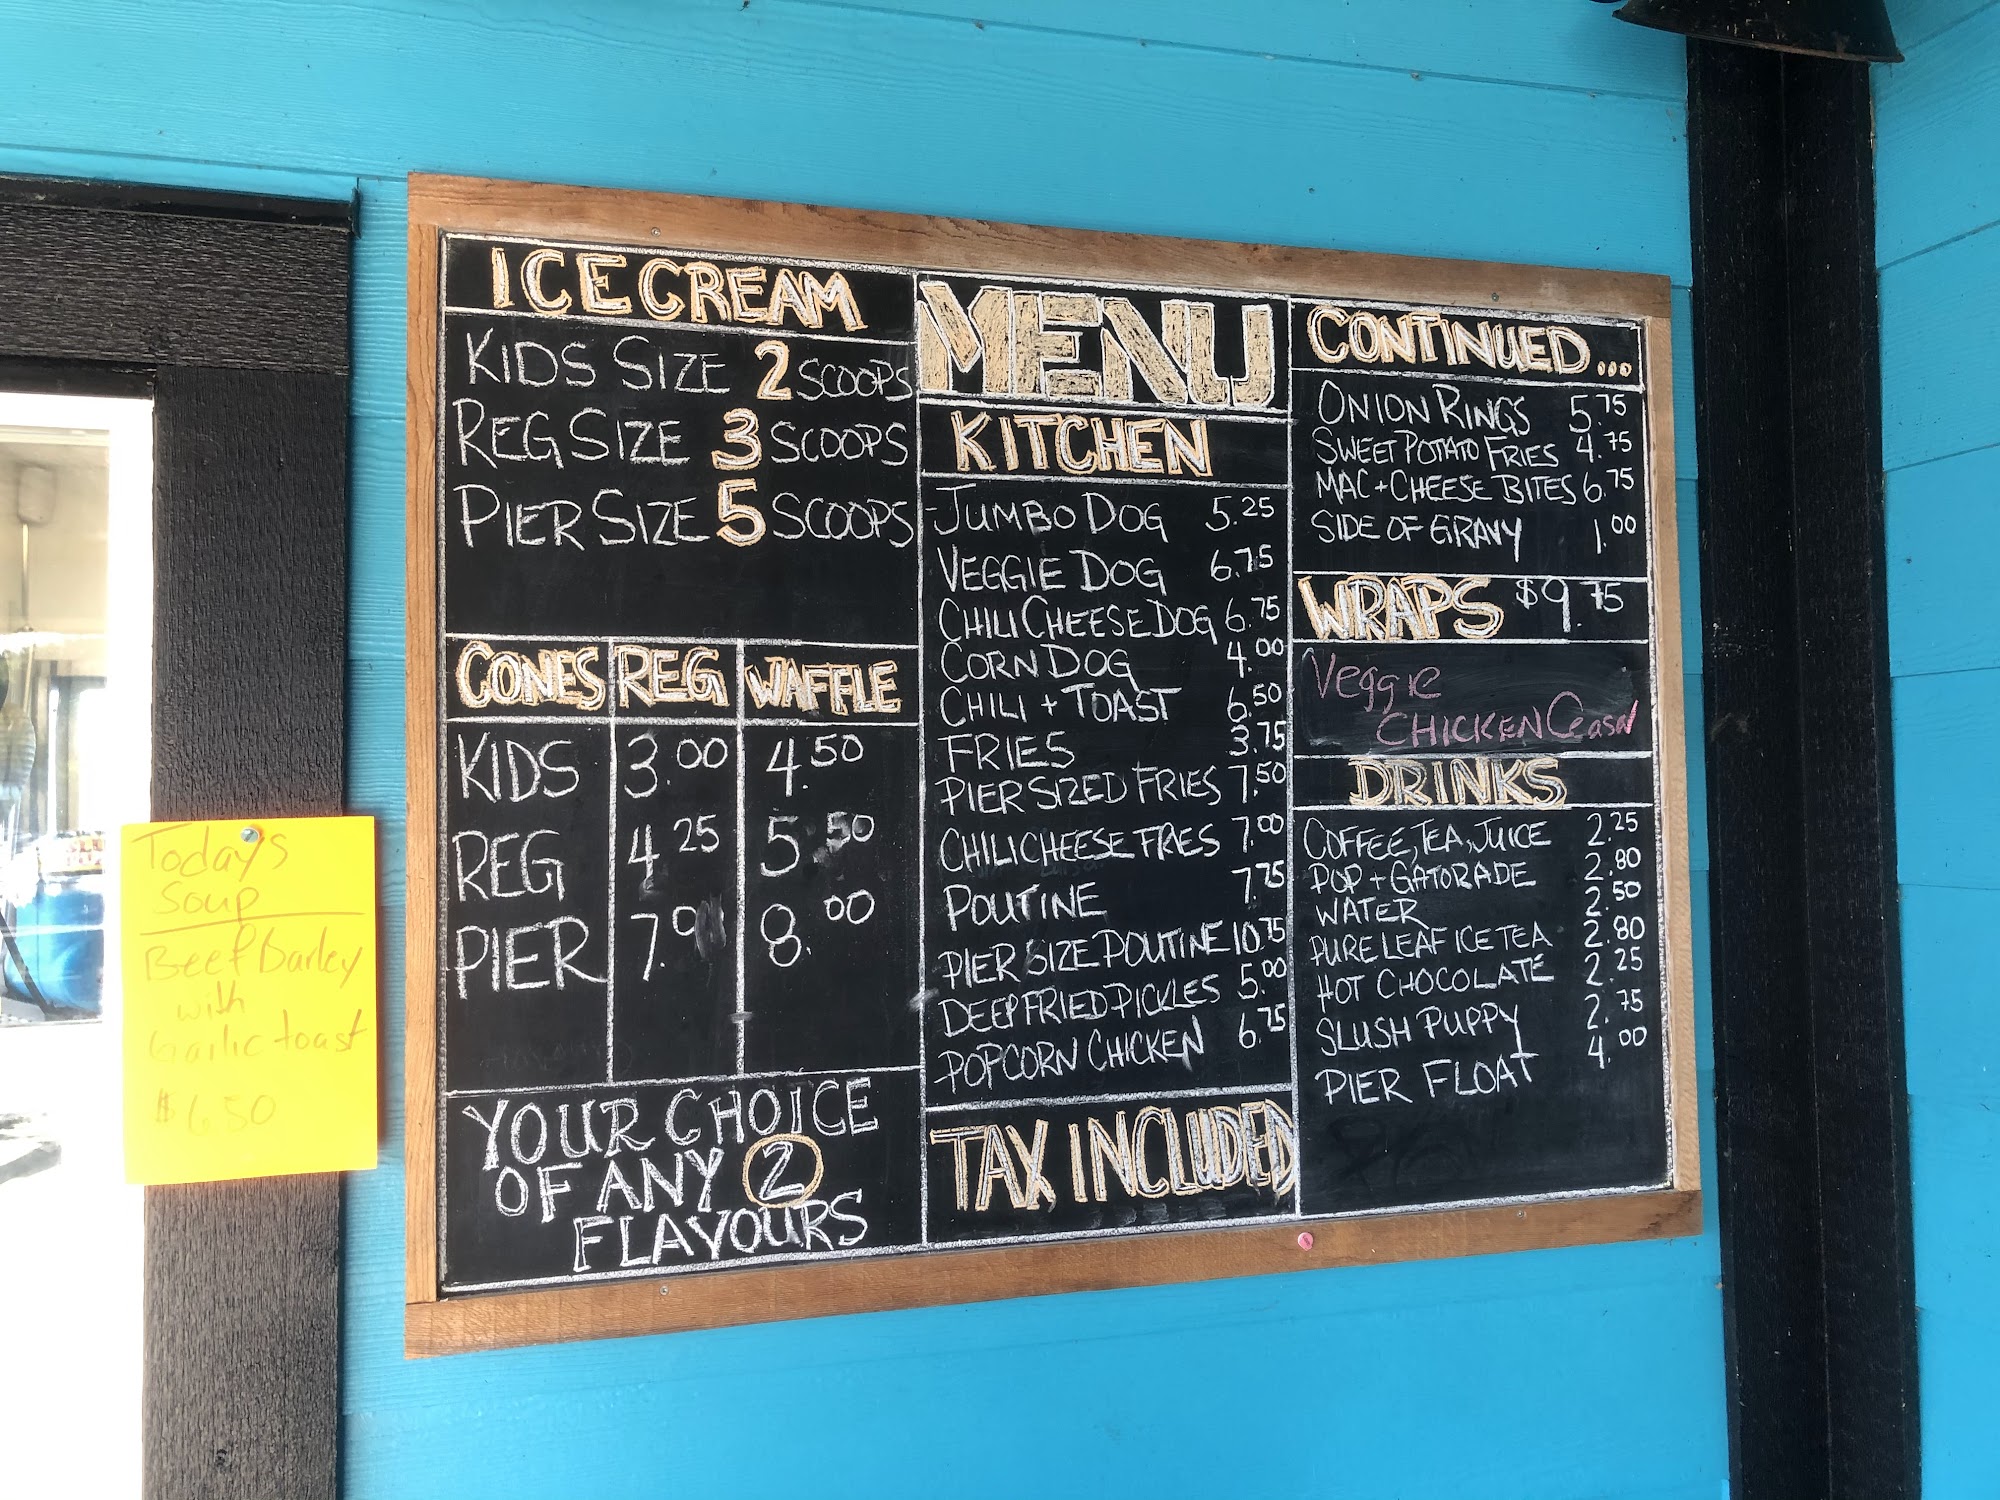 Today's
Soup
Beef Barley
with
Garlic toast
$6.50
ICE CREAM
KIDS SIZE 2 SCOOPS
REG SIZE 3 SCOOPS
PIER SIZE 5 SCOOPS
CONES REG WAFFLE
KIDS 3.00 4.50
REG 4.25 5.50
PIER 7. 8.00
YOUR CHOICE
OF ANY 2
FLAVOURS
MENU
KITCHEN
JUMBO DOG 5.25
VEGGIE DOG 6.75
CHILI CHEESE DOG 6.75
CORN DOG 4.00
CHILI + TOAST 6.50
FRIES 3.75
PIER SIZED FRIES 7.50
CHILI CHEESE FRIES 7.00
POUTINE 7.75
PIER SIZE POUTINE 10.75
DEEP FRIED PICKLES 5.00
POPCORN CHICKEN 6.75
TAX INCLUDED
CONTINUED...
ONION RINGS 5.75
SWEET POTATO FRIES 4.75
MAC + CHEESE BITES 6.75
SIDE OF GRAVY 1.00
WRAPS $9.75
Veggie
CHICKEN Ceasar
DRINKS
COFFEE, TEA, JUICE 2.25
POP + GATORADE 2.80
WATER 2.50
PURE LEAF ICE TEA 2.80
HOT CHOCOLATE 2.25
SLUSH PUPPY 2.75
PIER FLOAT 4.00